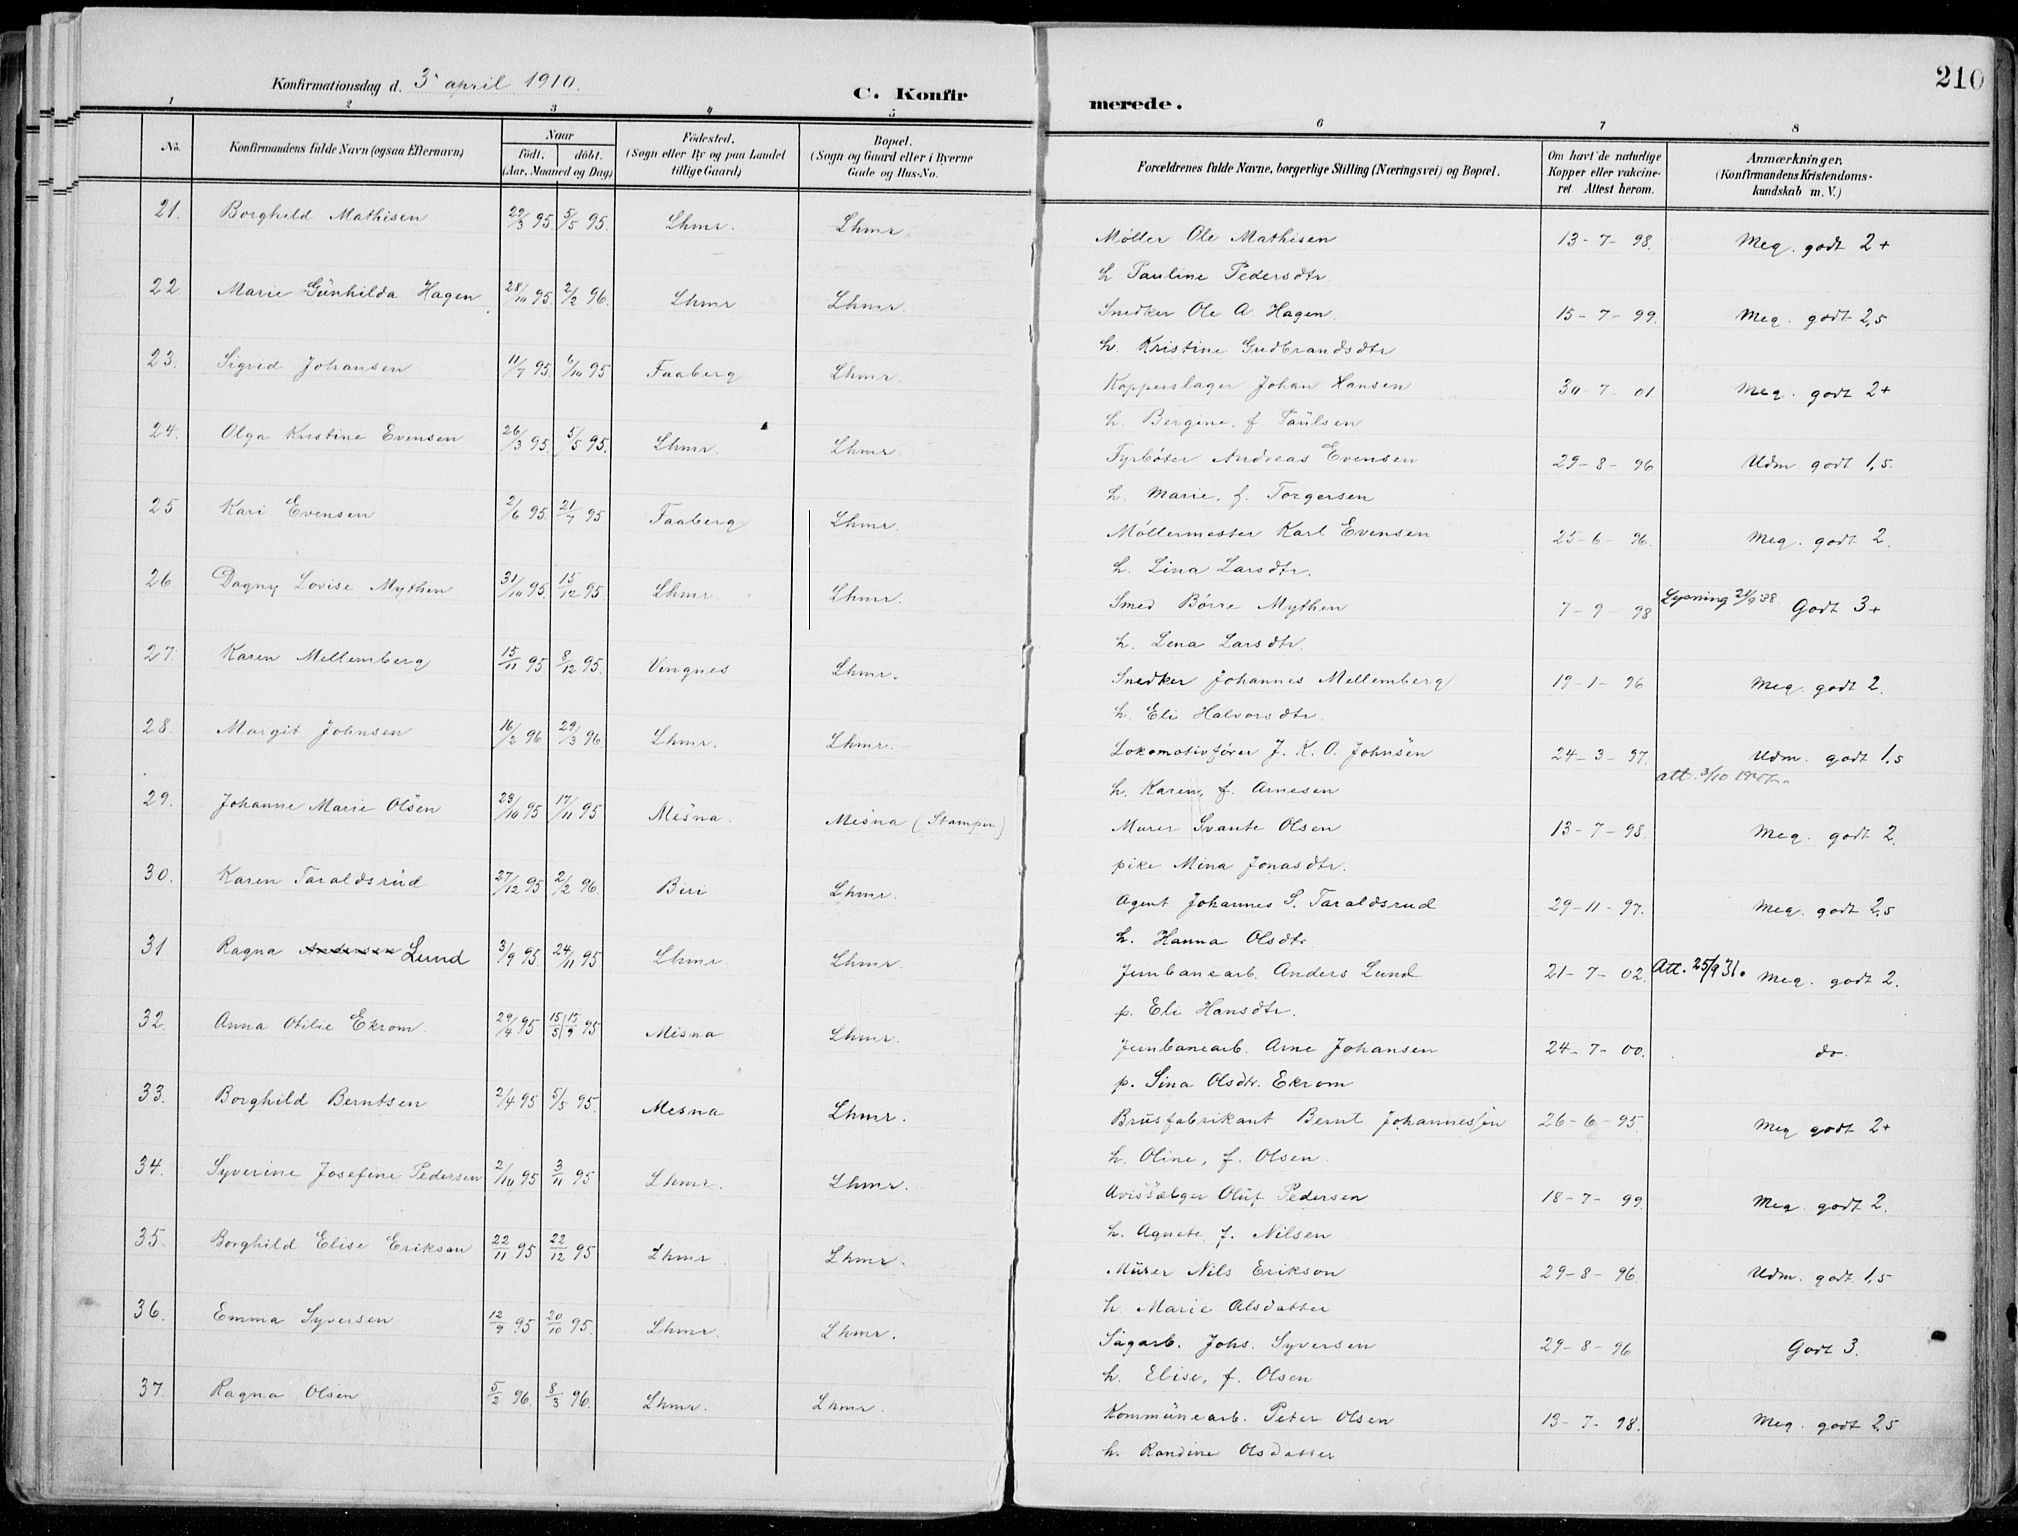 210
Konfirmationsdag d. 3. april 1910.
C. Konfirmerede.
1 2 3 4 5 6 7 8
No. Konfirmandens fulde Navn (ogsaa Efternavn) Naar født. døbt. (Aar, Maaned og Dag) Fødested. (Sogn eller By og paa Landet tillige Gaard) Bopæl. (Sogn og Gaard eller i Byerne Gade og Hus-No. Forældrenes fulde Navne, borgerlige Stilling (Næringsvei) og Bopæl. Om havt de naturlige Kopper eller vakcineret Attest herom. Anmærkninger, (Konfirmandens Kristendomskundskab m. V.)
21. Borghild Mathisen 29/3 95. 5/5 95. Lhmr. Lhmr. Møller Ole Mathisen 13-7-98. Meg. godt 2+
h Pauline Pedersdtr
22 Marie Gunhilda Hagen 28/10 95. 2/2 96. Lhmr Lhmr. Snedker Ole A Hagen. 15-7-99. Meg. godt 2,5
h. Kristine Gudbrandsdtr
23. Sigrid Johansen 11/7 95. 6/10 95 Faaberg Lhmr. Kopperslager Johan Hansen 30-7-01 Meg. godt 2+
h. Bergine. f Paulsen
24. Olga Kristine Evensen 26/3 95. 5/5 95. Lhmr. Lhmr. Fyrbøter Andreas Evensen 29-8-96 Udm godt 1,5.
h. Marie, f. Torgersen
25 Kari Evensen 2/6 95. 21/7 95. Faaberg Lhmr. Møllermester Karl Evensen 25-6-96. Meg. godt 2.
h. Lina Larsdtr.
26 Dagny Lovise Mythen 31/10 95. 15/12 95. Lhmr Lhmr. Smed Børre Mythen 7-9-98. Lysning 21/9 38. Godt 3+
h. Lena Larsdtr.
27. Karen Mellemberg 15/11 95. 8/12 95. Vingnes Lhmr. Snedker Johannes Mellemberg 19-1-96 Meg. godt 2.
h. Eli Halvorsdtr.
28. Margit Johnsen 16/2 96 29/3 96. Lhmr. Lhmr. Lokomotivfører J. K. O. Johnsen 24-3-97. Udm. godt 1,5
att. 3/10
h. Karen, f. Arnesen
29. Johanne Marie Olsen 28/10 95 17/11 95 Mesna. Mesna (Stampen) Murer Svante Olsen 13-7-98. Meg. godt 2.
pike Mina Jonasdtr.
30. Karen Taraldsrud 27/12 95 2/2 96. Biri Lhmr. Agent Johannes S. Taraldsrud 29-11-97. Meg. godt 2,5
h. Hanna Olsdtr
31 Ragna Andersen Lund 3/9 95. 24/11 95 Lhmr Lhmr. Jernbanearb. Anders Lund 21-7-02. Att. 25/9 31. Meg. godt 2.
p. Eli Hansdtr.
32. Anna Otilie Ekrom. 29/4 95 15/5 15/9 95 Mesna Lhmr. Jernbanearb. Arne Johansen 24-7-00. do.
p. Sina Olsdtr. Ekrom
33. Borghild Berntsen 2/4 95 5/5 95. Mesna Lhmr. Brusfabrikant Bernt Johannessen 26-6-95. Meg godt 2+
h. Oline, f. Olsen.
34. Syverine Josefine Pedersen 2/10 95 3/11 95 Lhmr. Lhmr. Avissælger Oluf Pedersen 18-7-99. Meg. godt 2.
h. Agnete, f. Nilsen
35. Borghild Elise Erikson 22/11 95 22/12 95 Lhmr Lhmr. Murer Nils Erikson 29-8-96. Udm. godt 1,5
h. Marie Olsdatter
36. Emma Syversen 12/9 95. 20/10 95. Lhmr. Lhmr. Sagarb. Johs. Syversen 29-8-96 Godt 3.
h. Elise, f. Olsen
37. Ragna Olsen 5/2 96. 8/3 96. Lhmr. Lhmr. Kommunearb. Peter Olsen 13-7-98. Meg. godt 2,5
h. Randine Olsdatter